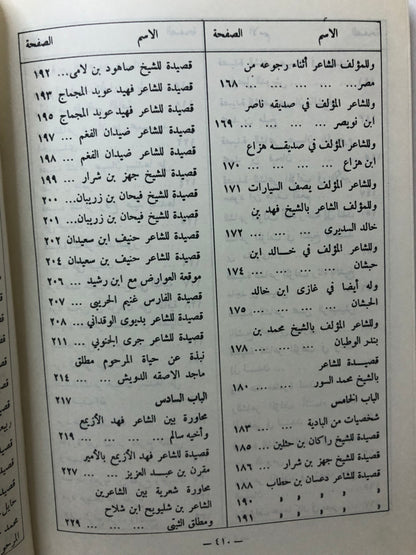 الاسم الصفحة
وللمؤلف الشاعر أثناء رجوعه من
مصر ... ... ... ... ١٦٨
وللشاعر المؤلف في صديقه ناصر
ابن نويصر ... ... ... ١٦٩
وللشاعر المؤلف في صديقـــه هزاع
ابن هزاع ... ... ... ١٧٠
وللشاعر المؤلف يصف السيارات ١٧١
وللمؤلف الشاعر بالشيخ فهد بن
خالد السديرى ... ... ١٧٢
وللشاعر المؤلف في خـــالد ابن
حيشان ... ... ... ١٧٤
وله أيضا في غازى ابن خالد
الحيشان ... ... ... ١٧٥
وللشاعر المؤلف بالشيخ محمد بن
بندر الوطبان ... ... ١٧٨
قصيـــدة للشاعر
بالشيخ محمد السور ... ... ١٨٠
الباب الخامس
شخصيات من البادية ... ... ١٨٣
قصيدة للشيخ راكان بن حثلين ... ١٨٥
قصيدة للشيخ جهز بن شرار ... ١٨٦
قصيدة للشاعر دعسان بن حطاب ١٨٨
» » » » ١٩٠
» » » » ١٩١
الاسم الصفحة
قصيدة للشيخ صاهود بن لامى ... ١٩٢
قصيدة للشاعر فهيد عويد المجماج ١٩٣
قصيدة للشاعر فهيد عويد المجماج ١٩٥
قصيدة للشاعر ضيدان الفغم ... ١٩٧
قصيدة للشاعر ضيدان الفغم ... ١٩٨
قصيدة للشيخ جهز بن شرار ... ١٩٩
قصيدة للشيخ فيحان بن زريبان ... ٢٠٠
قصيدة للشيخ فيحان بن زريبان ... ٢٠١
قصيدة للشاعر حنيف ابن سعيدان ٢٠٢
قصيدة للشاعر حنيف بن سعيدان ٢٠٤
موقعة العوارض مع ابن رشيد ... ٢٠٦
قصيدة للفارس غنيم الحربي ... ٢٠٧
قصيدة للشاعر بديوى الوقداني ... ٢٠٨
قصيدة للشاعر جرى الجنوبي ... ٢١١
نبذة عن حياة المرحوم مطلق
ماجد الاصقه الدويش ... ... ٢١٤
الباب السادس ٢١٧
محاورة بين الشاعر فهد الأزيمع
وأخيه سالم ... ... ... ٢١٩
قصيدة للشاعر فهد الأزيمع بالأمير
مقرن بن عبد العزيز ... ... ٢٢٧
محاورة شعرية بين الشاعرين
الشاعر بن شليويح ابن شلاح
ومطلق الثبيتي ... ... ... ٢٢٩
— ٤١٠ —